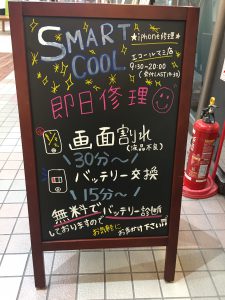 SMART
COOL
★iphone修理★
エコールマミ店
9:30~20:00
(受付LAST19:30)
即日修理
画面割れ
(液晶不良)
30分~
バッテリー交換
15分~
無料でバッテリー診断
しておりますので
お気軽に
お声かけ下さい